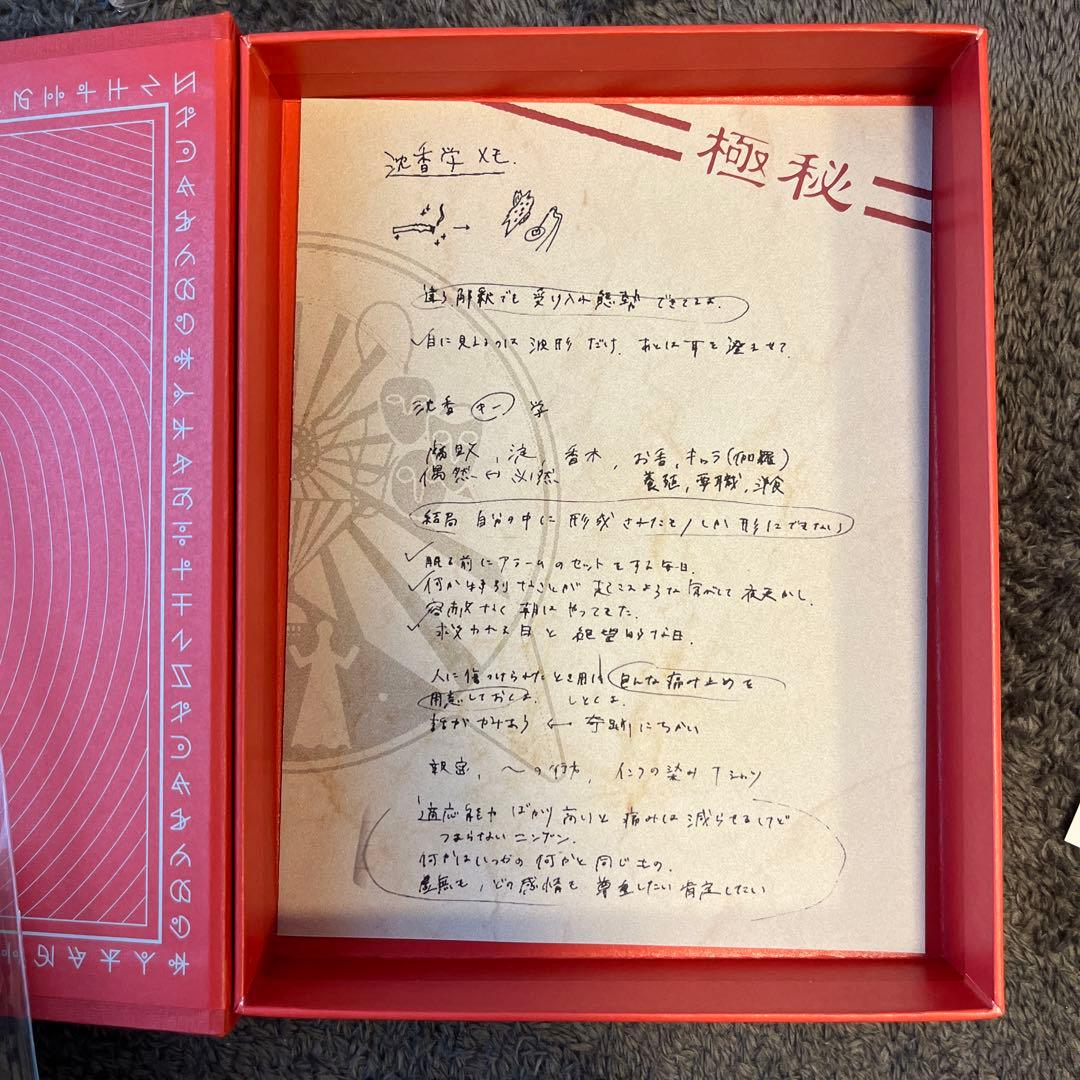 極秘
沈香学 メモ.
違う解釈でも 受け入れ態勢 できてるよ.
目に見えるのは 波形 だけ. あとは耳を澄ませて.
沈香 学
腐敗, 淀, 香木, お香, キャラ(伽羅)
偶然 ↔ 必然
結局 自分の中に 形成 されたもの しか 形にできない
眠る前にアラームのセットをする毎日.
何か特別なことが 起こるような 気がして 夜更かし.
容赦なく 朝は やってきた.
救われる日と 絶望的な日.
人に傷つけられたとき用に 色んな痛み止めを
用意しておくよ. しとくよ.
話がかみあう ← 奇跡にちかい
親密, 〜の行方, インクの染み Tシャツ
適応能力 ばかり 高いと 痛みは 減らせるけど
つまらない ニンゲン.
何かはいつかの 何かと 同じもの.
虚無も, どの感情も 尊重したい 肯定したい